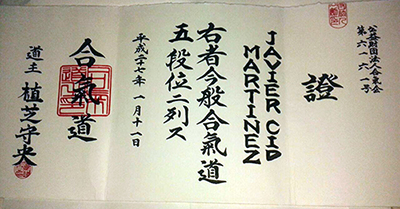 公益財団法人合気会
證
JAVIER CID
MARTINEZ
右者今般合氣道
五段位ニ列ス
平成二十七年 一月十一日
合氣道
道主 植芝守央